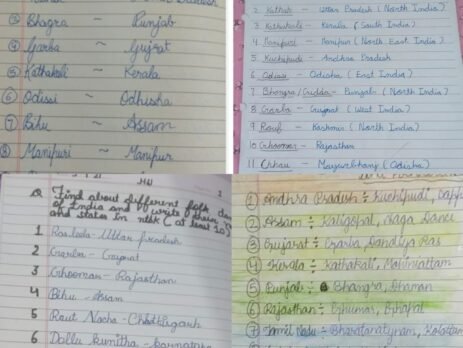 ③ Bhagra ~ Punjab
④ Garba ~ Gujrat
⑤ Kathakali ~ Kerala
⑥ Odissi ~ Odhisha
⑦ Bihu ~ Assam
⑧ Manipuri ~ Manipur
2 Kathak - Uttar Pradesh (North India)
3 Kathakali - Kerala (South India)
4 Manipuri - Manipur (North East India)
5 Kuchipudi - Andhra Pradesh
6 Odissi - Odisha (East India)
7 Bhangra/Giddha - Punjab (North India)
8 Garba - Gujrat (West India)
9 Rouf - Kashmir (North India)
10 Ghoomar - Rajasthan
11 Chhau - Mayurbhanj (Odisha)
Q. Find about different folk
of India and write their
and states in ntbk (at least 10)
1 Ras leela - Uttar pradesh
2 Garba - Gujrat
3 Ghooman - Rajasthan
4 Bihu - Assam
5 Raut Nacha - Chhattisgarh
6 Dollu kunitha -
① Andhra Pradesh ÷ Kuchipudi,
② Assam ÷ Kaligopal, Naga Dance
③ Gujarat ÷ Garba, Dandiya Ras
④ Kerala ÷ Kathakali, Mohiniattam
⑤ Punjab ÷ Bhangra, Dhaman
⑥ Rajasthan ÷ Ghumar,
⑦ Tamil Nadu ÷ Bharatanatyam,